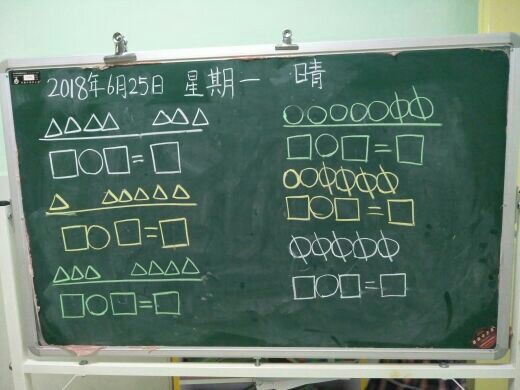 2018年6月25日 星期一 晴